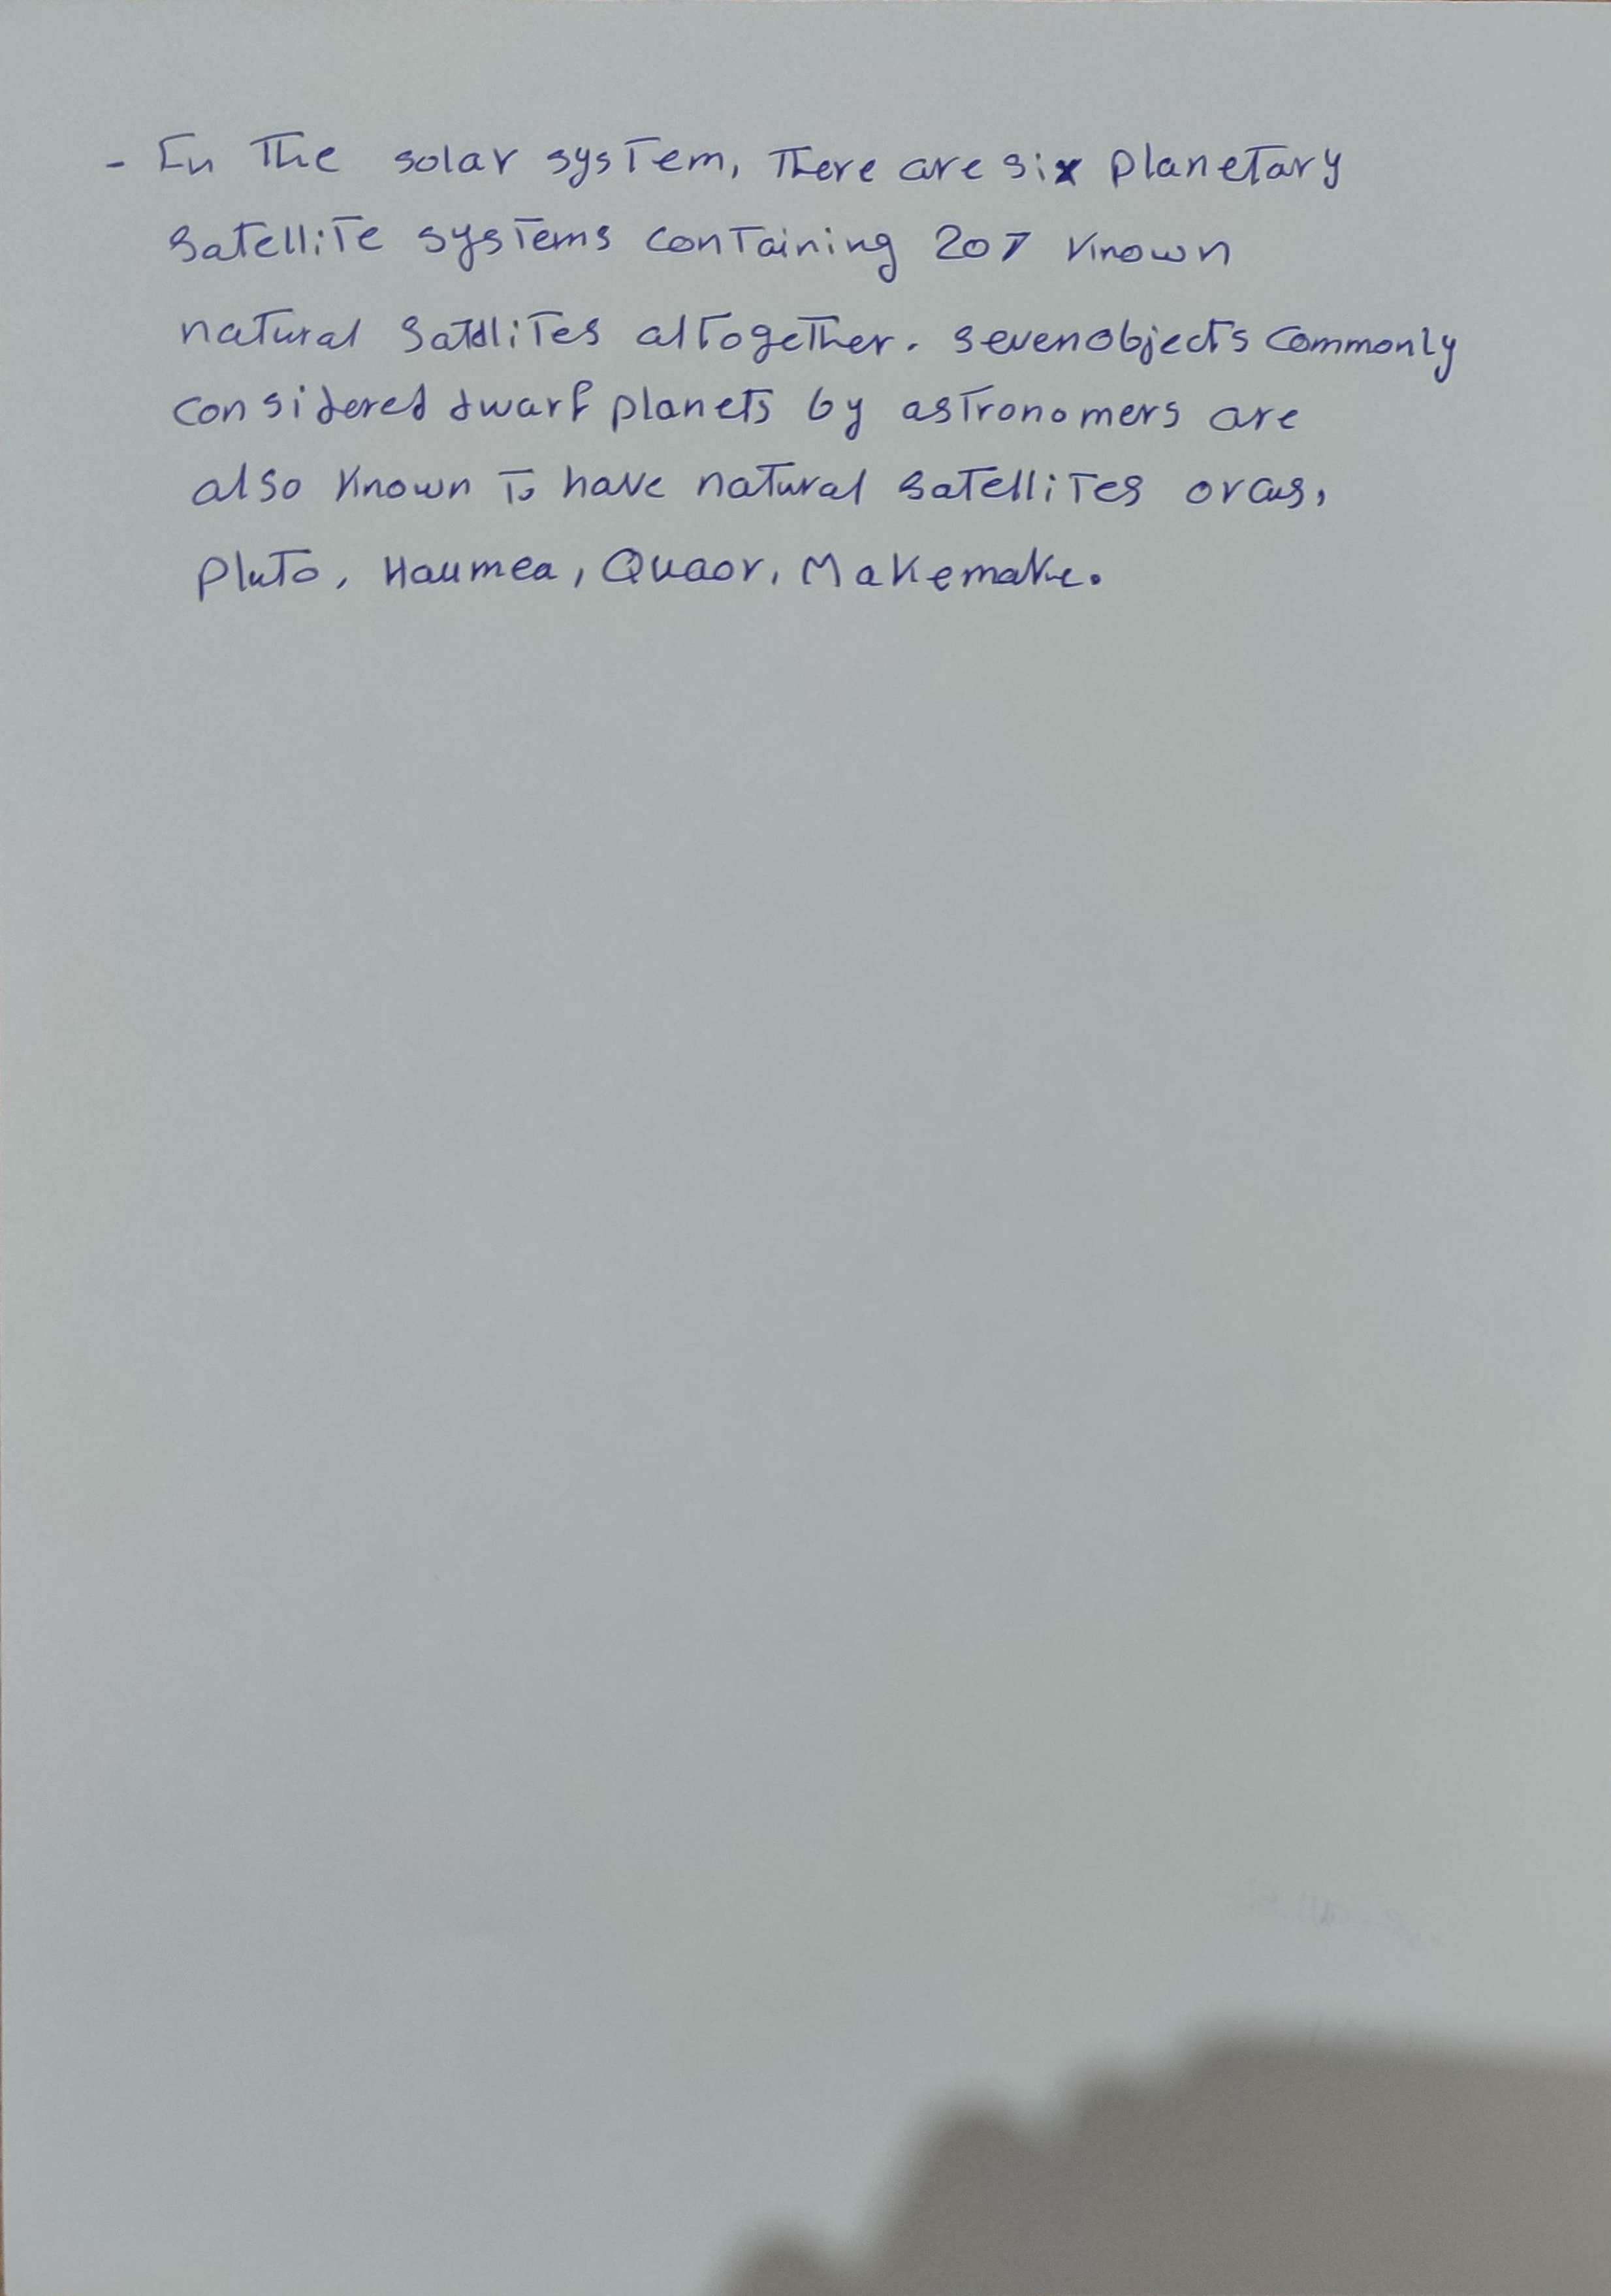 - In The solar system, There are six planetary
satellite systems containing 207 known
natural satellites altogether. sevenobjects commonly
considered dwarf planets by astronomers are
also known to have natural satellites orcus,
pluto, Haumea, Quaor, Makemake.